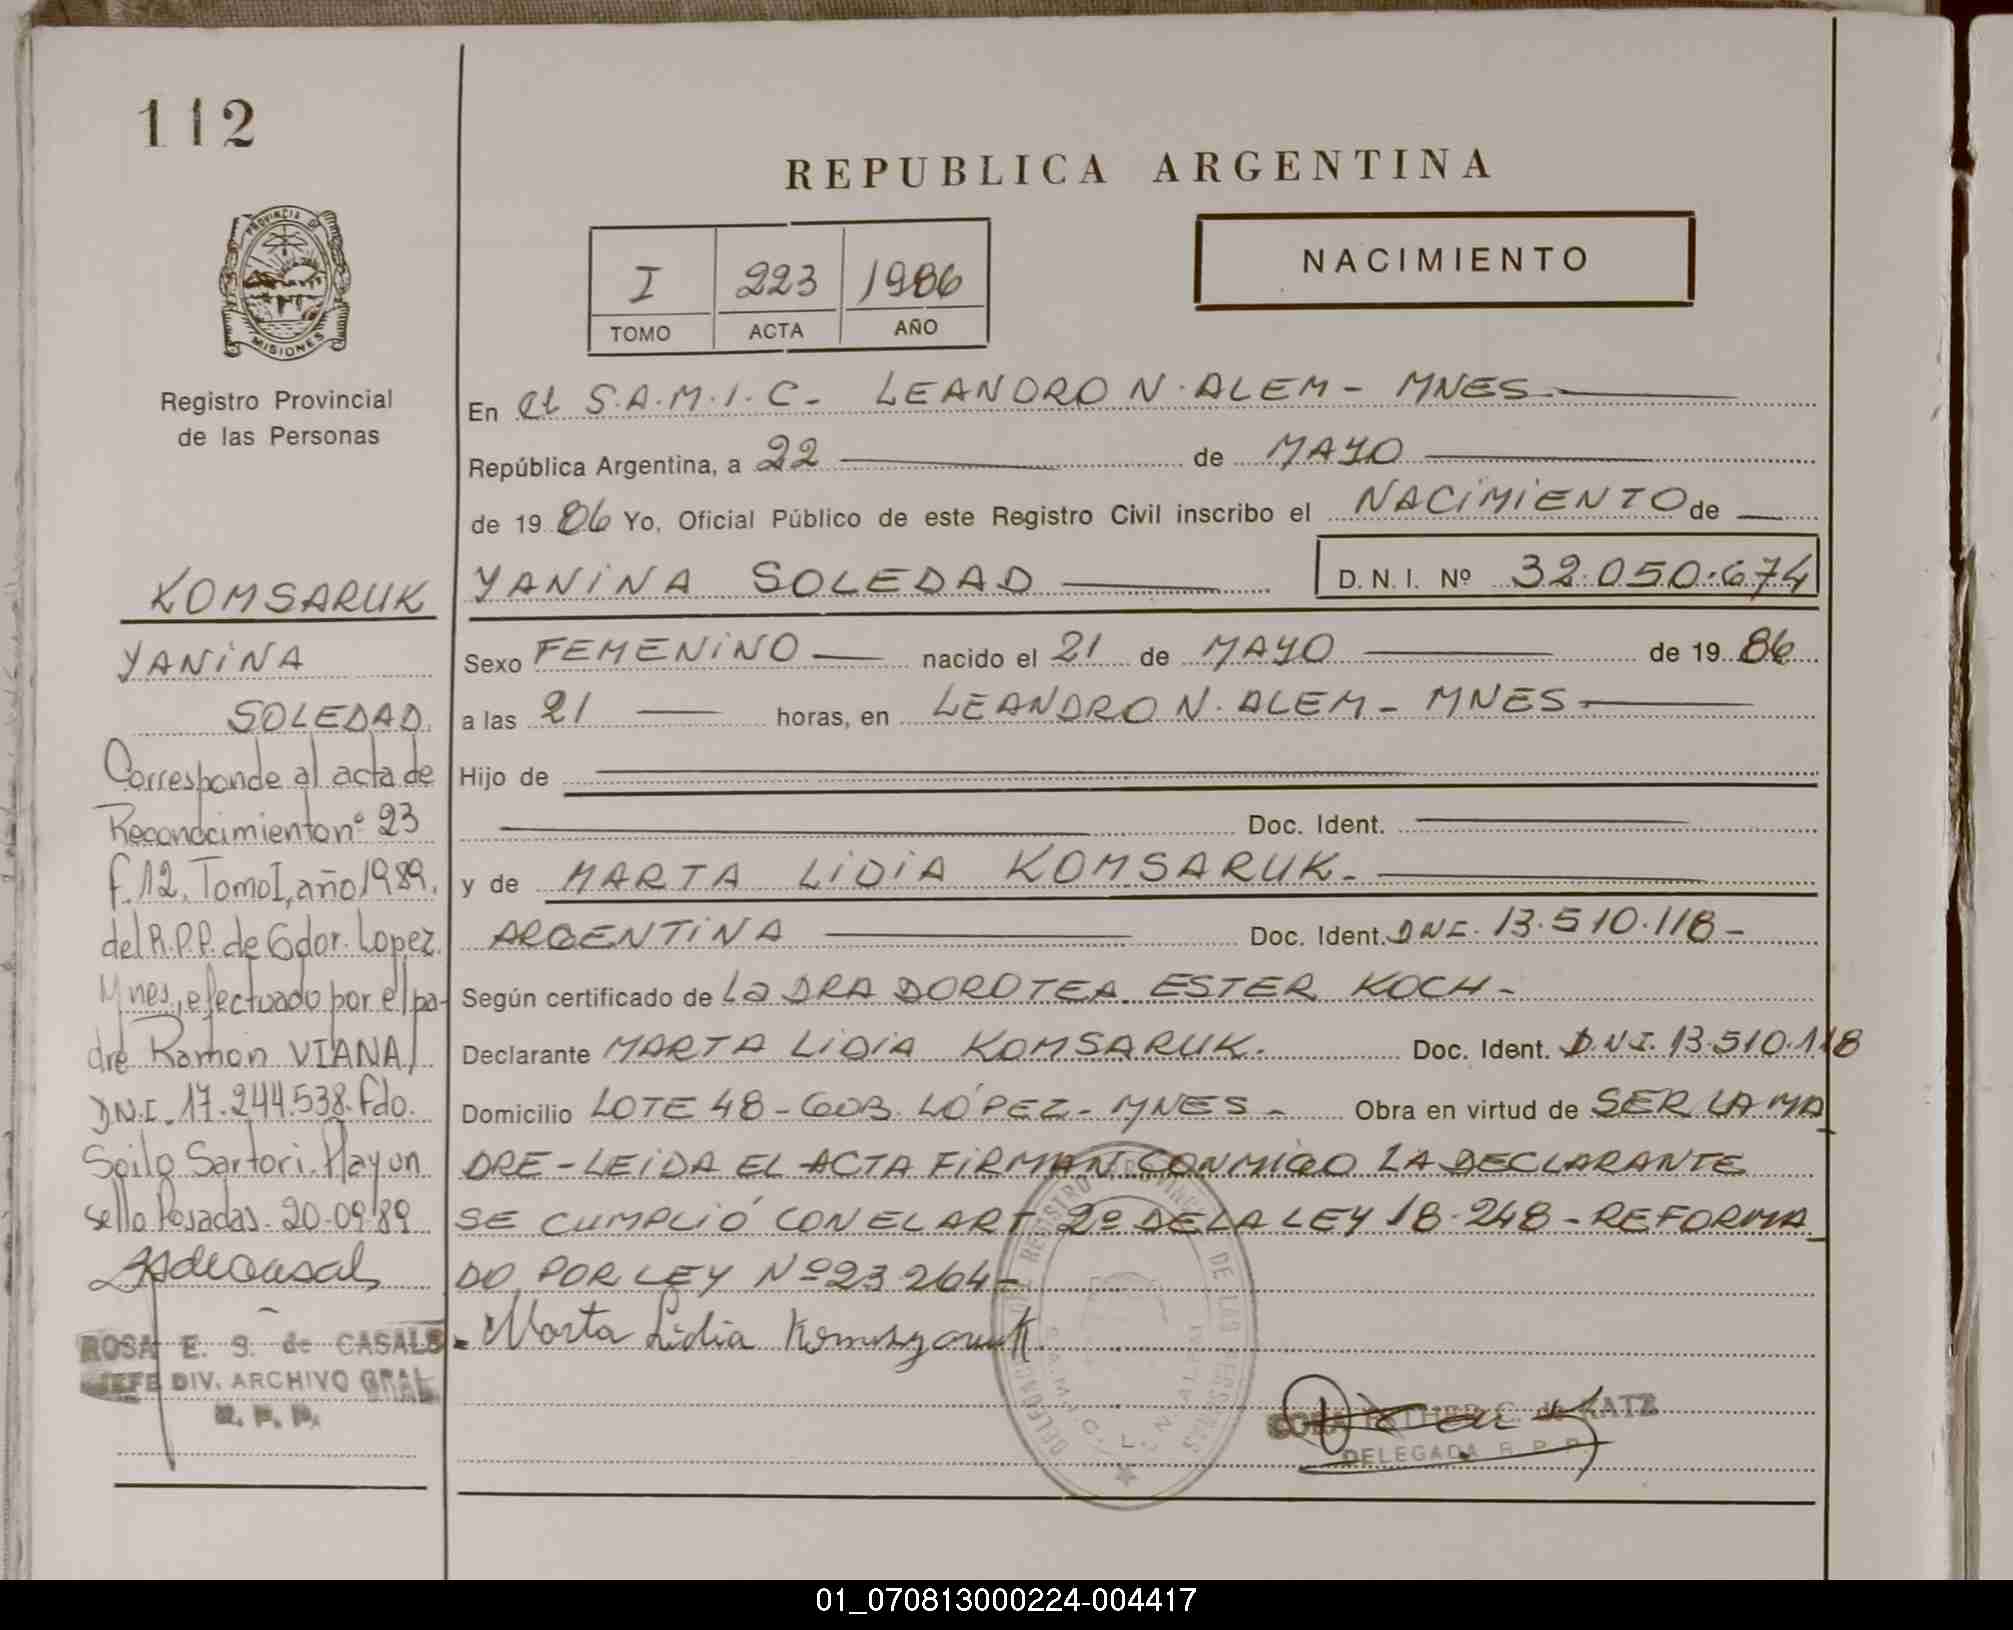 112
REPUBLICA ARGENTINA
PROVINCIA DE
MISIONES
Registro Provincial
de las Personas
I 223 1986
TOMO ACTA AÑO
NACIMIENTO
En el S.A.M.I.C- LEANDRO N. ALEM - MNES
República Argentina, a 22 de MAYO
de 1986 Yo, Oficial Público de este Registro Civil inscribo el NACIMIENTO de
YANINA SOLEDAD D. N. I. Nº 32.050.674
Sexo FEMENINO nacido el 21 de MAYO de 1986
a las 21 horas, en LEANDRO N. ALEM - MNES
Hijo de
Doc. Ident.
y de MARTA LIDIA KOMSARUK.-
ARGENTINA Doc. Ident. DNI. 13.510.118-
Según certificado de La DRA DOROTEA ESTER KOCH-
Declarante MARTA LIDIA KOMSARUK. Doc. Ident. D.N.I. 13.510.118
Domicilio LOTE 48 - GOB. LÓPEZ - MNES - Obra en virtud de SER LA MA
DRE - LEIDA EL ACTA FIRMAN CONMIGO LA DECLARANTE
SE CUMPLIÓ CON EL ART 2º DE LA LEY 18.248 - REFORMA
DO POR LEY Nº 23.264-
Marta Lidia
DELEGADA R. P. P.
KOMSARUK
YANINA
SOLEDAD.
Corresponde al acta de
Reconocimiento nº 23
f. 12, Tomo I, año 1989,
del R.P.P. de Gdor. Lopez.
Mnes., efectuado por el pa-
dre Ramon VIANA,
DN.I. 17.244.538. Fdo.
Soilo Sartori. Hay un
sello Posadas. 20-09-89
ROSA E. S. de CASALS
JEFE DIV. ARCHIVO GRAL
R. P. P.
01_070813000224-004417